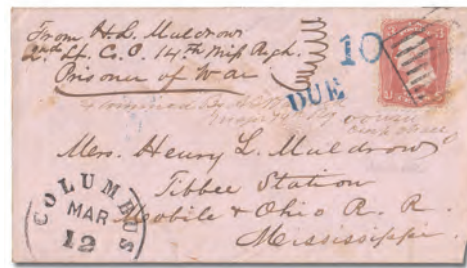 From H.L. Muldrow
2nd Lt. Co. C. 14th Miss Regt.
Prisoner of War
10
DUE
3 3
Examined By
Mrs. Henry L. Muldrow
Tibbee Station
Mobile & Ohio R. R.
Mississippi.
COLUMBUS
MAR
12